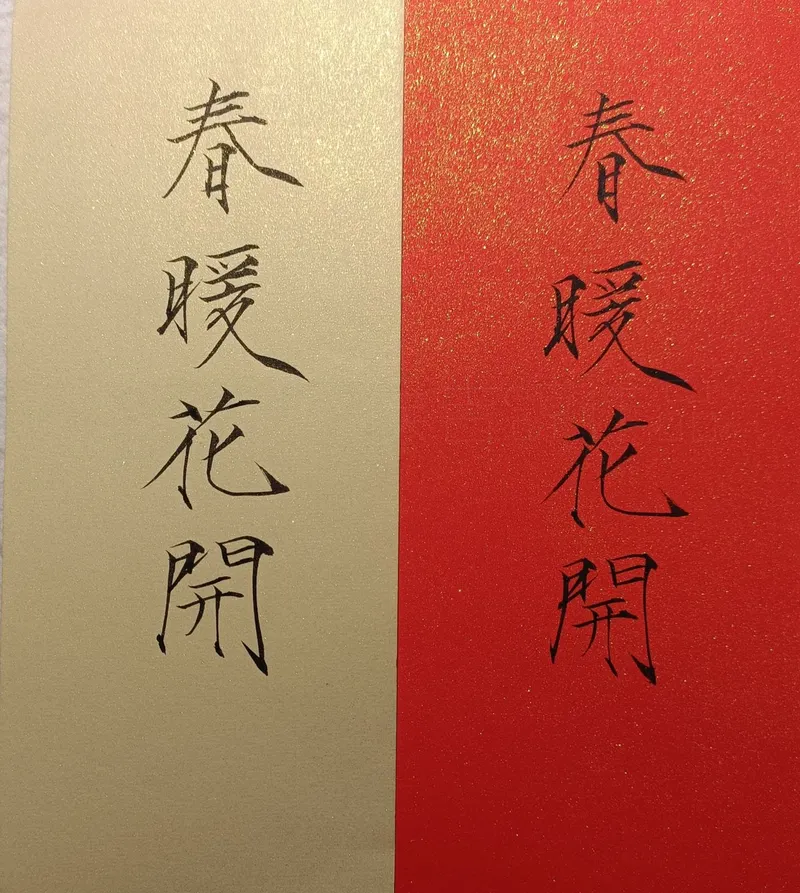 春暖花開
春暖花開